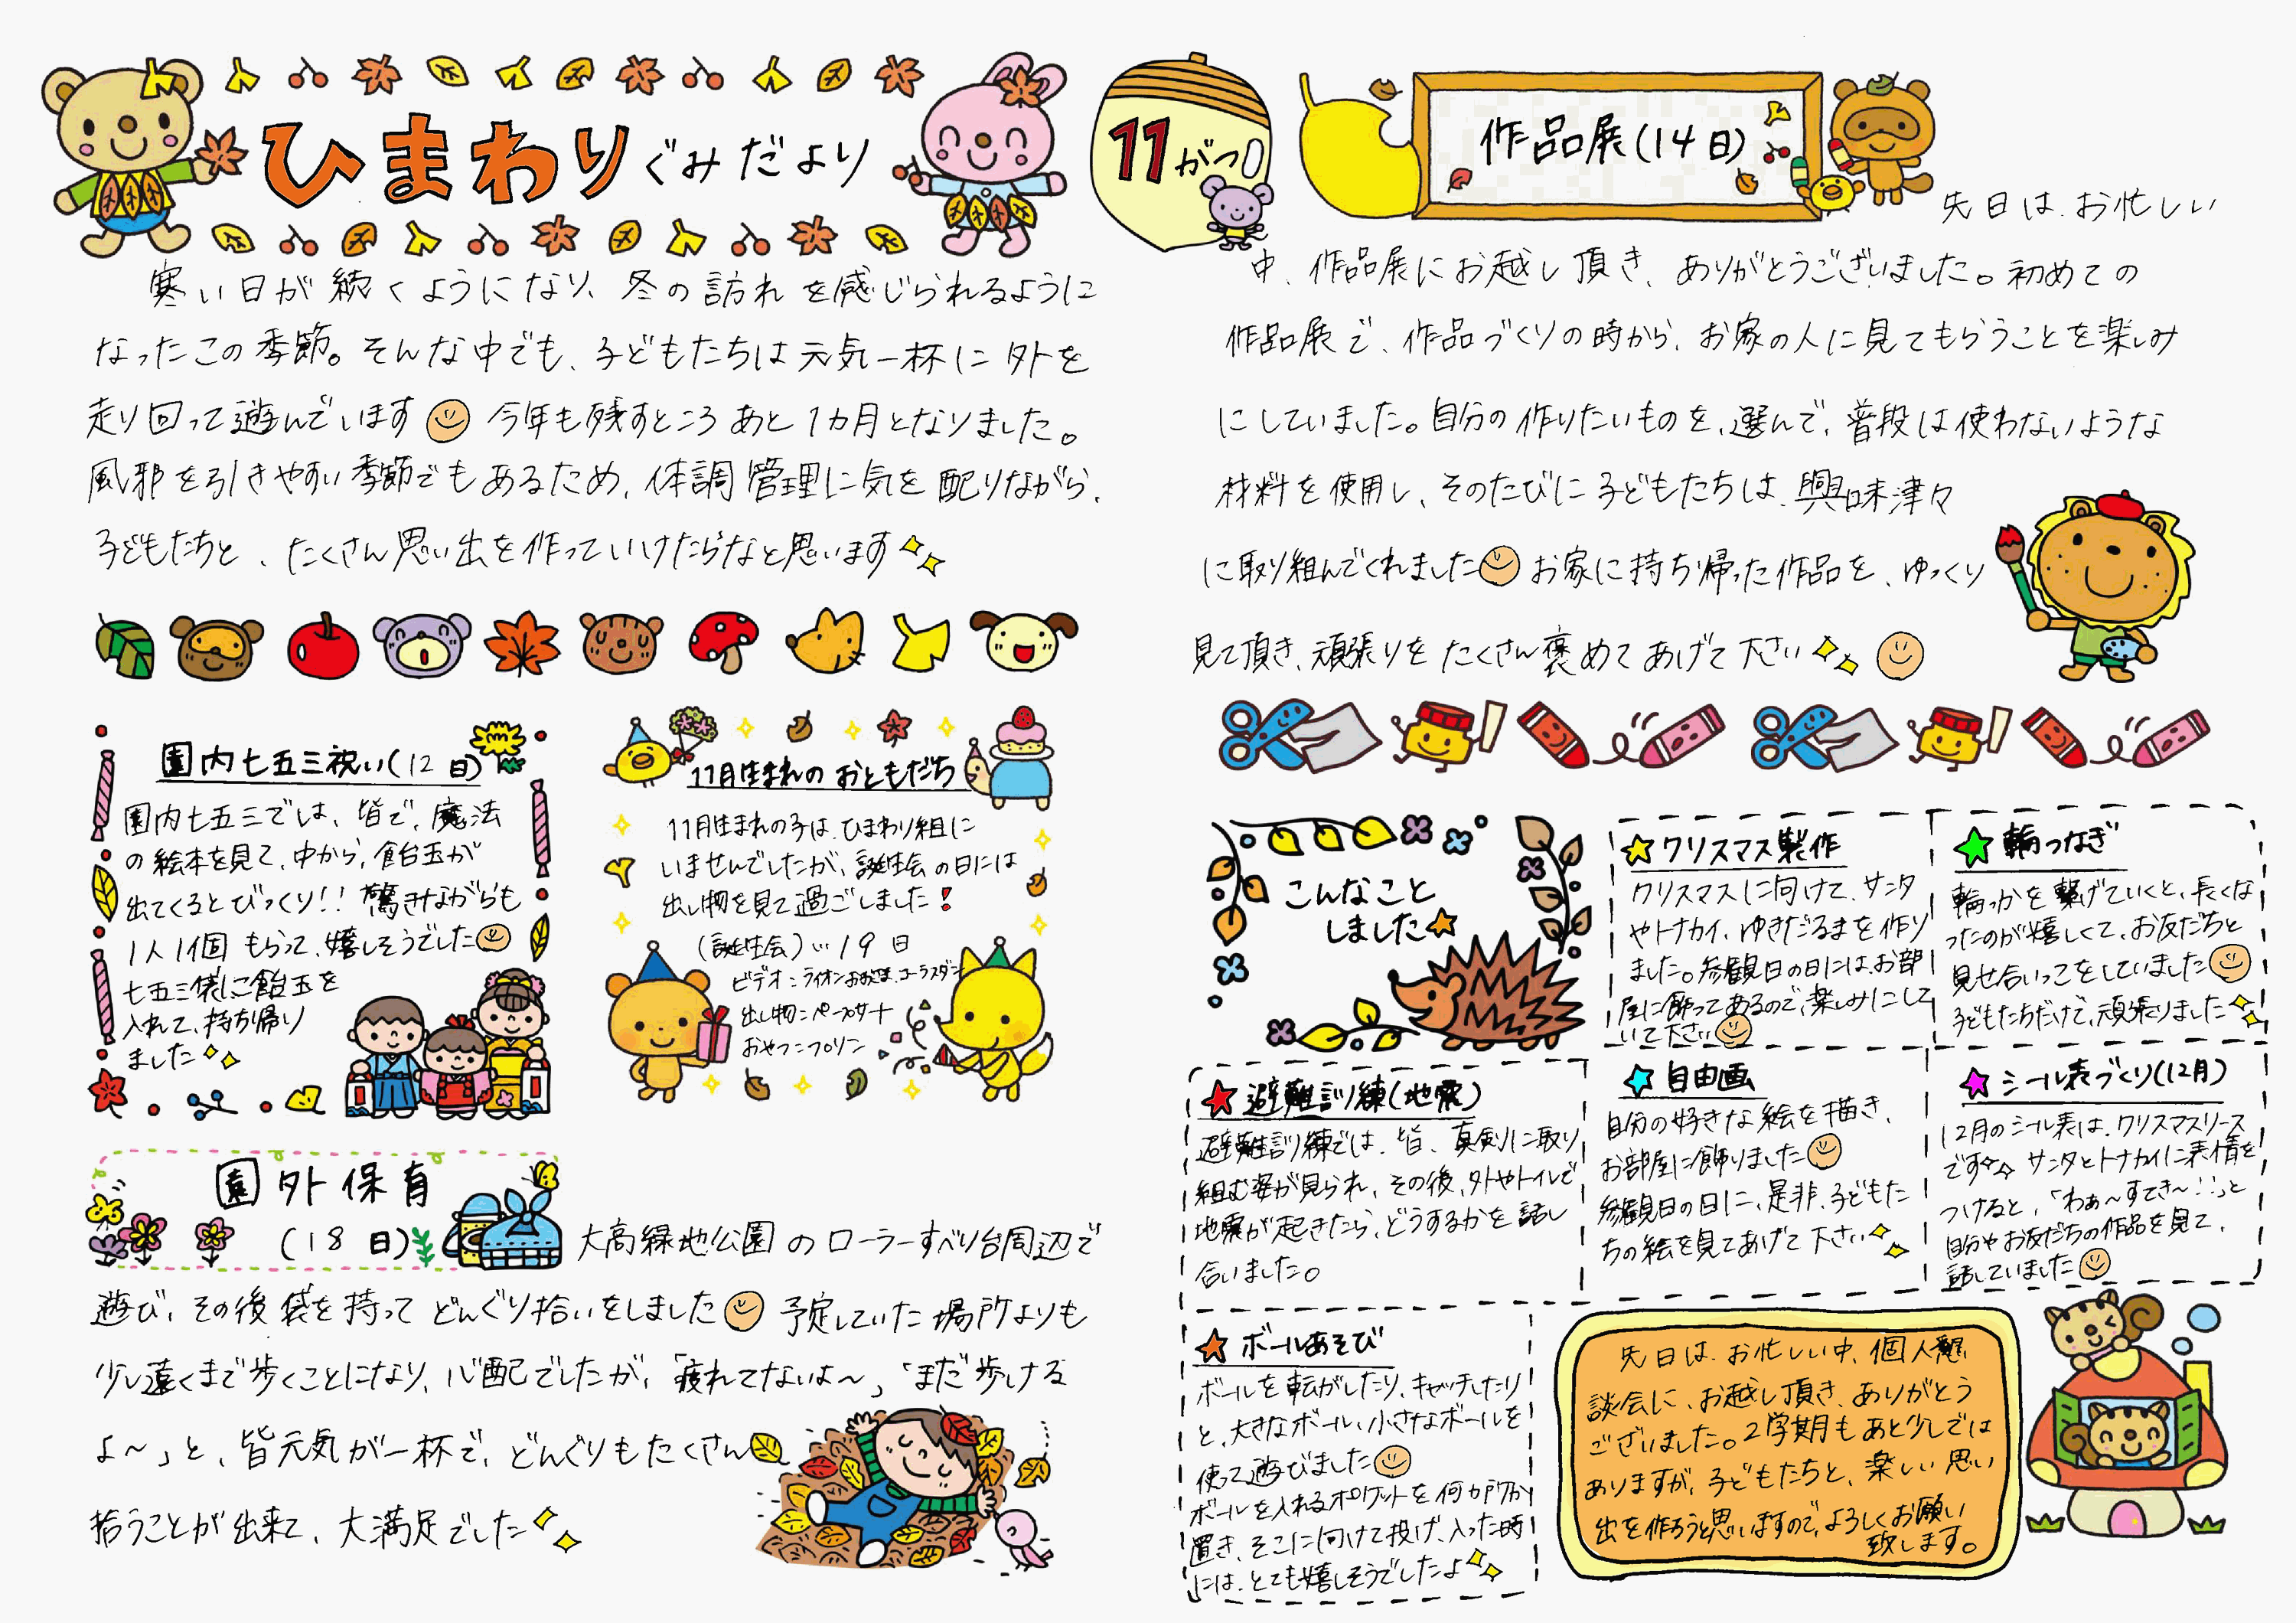 ひまわりぐみだより
11がつ
寒い日が続くようになり、冬の訪れを感じられるように
なったこの季節。そんな中でも、子どもたちは元気一杯に外を
走り回って遊んでいます 今年も残すところあと1カ月となりました。
風邪を引きやすい季節でもあるため、体調管理に気を配りながら、
子どもたちと、たくさん思い出を作っていけたらなと思います
園内七五三祝い(12日)
園内七五三では、皆で、魔法
の絵本を見て、中から、飴玉が
出てくるとびっくり!!驚きながらも
1人1個もらって、嬉しそうでした
七五三袋に飴玉を
入れて、持ち帰り
ました
11月生まれのおともだち
11月生まれの子は、ひまわり組に
いませんでしたが、誕生会の日には
出し物を見て過ごしました!
(誕生会)…19日
ビデオ:ライオンおおかみ、コーラスダン
出し物:ペープサート
おやつ:プリン
園外保育
(18日)
大高緑地公園のローラーすべり台周辺で
遊び、その後袋を持ってどんぐり拾いをしました 予定していた場所よりも
少し遠くまで歩くことになり、心配でしたが、「疲れてないよ～」「まだ歩ける
よ～」と、皆元気が一杯で、どんぐりもたくさん
拾うことが出来て、大満足でした
作品展(14日)
先日は、お忙しい
中、作品展にお越し頂き、ありがとうございました。初めての
作品展で、作品づくりの時から、お家の人に見てもらうことを楽しみ
にしていました。自分の作りたいものを、選んで、普段は使わないような
材料を使用し、そのたびに子どもたちは、興味津々
に取り組んでくれました お家に持ち帰った作品を、ゆっくり
見て頂き、頑張りをたくさん褒めてあげて下さい
こんなこと
しました
クリスマス製作
クリスマスに向けて、サンタ
やトナカイ、ゆきだるまを作り
ました。参観日の日には、お部
屋に飾ってあるので、楽しみにして
いて下さい
輪つなぎ
輪っかを繋げていくと、長くな
ったのが嬉しくて、お友だちと
見せ合いっこをしていました
子どもたちだけで、頑張りました
避難訓練(地震)
避難訓練では、皆、真剣に取り
組む姿が見られ、その後、外やトイレで
地震が起きたら、どうするかを話し
合いました。
自由画
自分の好きな絵を描き、
お部屋に飾りました
参観日の日に、是非、子どもた
ちの絵を見てあげて下さい
シール表づくり(12月)
12月のシール表は、クリスマスリース
です サンタとトナカイに表情を
つけると、「わぁ～すてき～!!」と
自分やお友だちの作品を見て、
話していました
ボールあそび
ボールを転がしたり、キャッチしたり
と、大きなボール、小さなボールを
使って遊びました
ボールを入れるポケットを何か所か
置き、そこに向けて投げ、入った時
には、とても嬉しそうでしたよ
先日は、お忙しい中、個人懇
談会に、お越し頂き、ありがとう
ございました。2学期もあと少しでは
ありますが、子どもたちと、楽しい思い
出を作ろうと思いますので、よろしくお願い
致します。